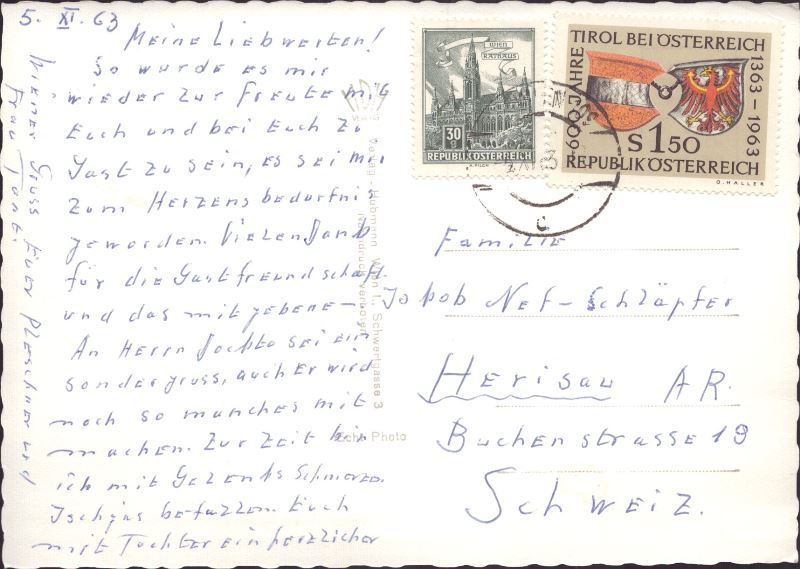 5. XI. 63
Meine Liebwerten!
So wurde es mir
wieder zur Freute mit
Euch und bei Euch zu
Gast zu sein, es sei mir
zum Herzens bedürfnis
geworden. Vielen Dank
für die Gastfreundschaft
und das mitgebene –
An Herrn
sei ein
sondergruss, auch Er wird
noch so manches mit
machen. Zur Zeit bin
ich mit Gelenks Schmerzen
Ischias befallen. Euch
mit Tochter ein herzlicher
Wiener Gruss Euer Pleschner und
Frau
Verlag Hubmann, Wien I., Schwertgasse 3
Nachdruck verboten
Echt Photo
WIEN
RATHAUS
30 g
REPUBLIK ÖSTERREICH
TIROL BEI ÖSTERREICH
600 JAHRE
1363 – 1963
S 1.50
REPUBLIK ÖSTERREICH
O. HALLER
Familie
Jakob Nef-Schläpfer
Herisau AR.
Buchenstrasse 19
Schweiz.